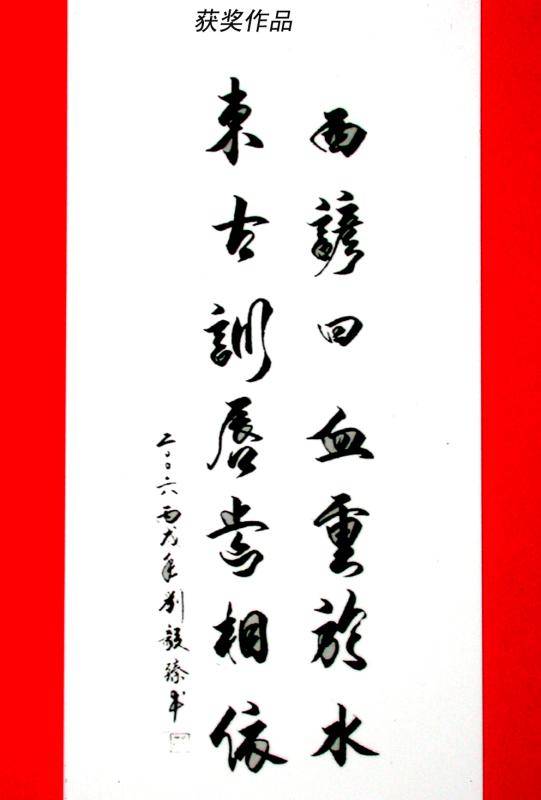 获奖作品
西諺曰血重於水
東古訓唇齿相依
二〇〇六丙戌年刘毅臻书